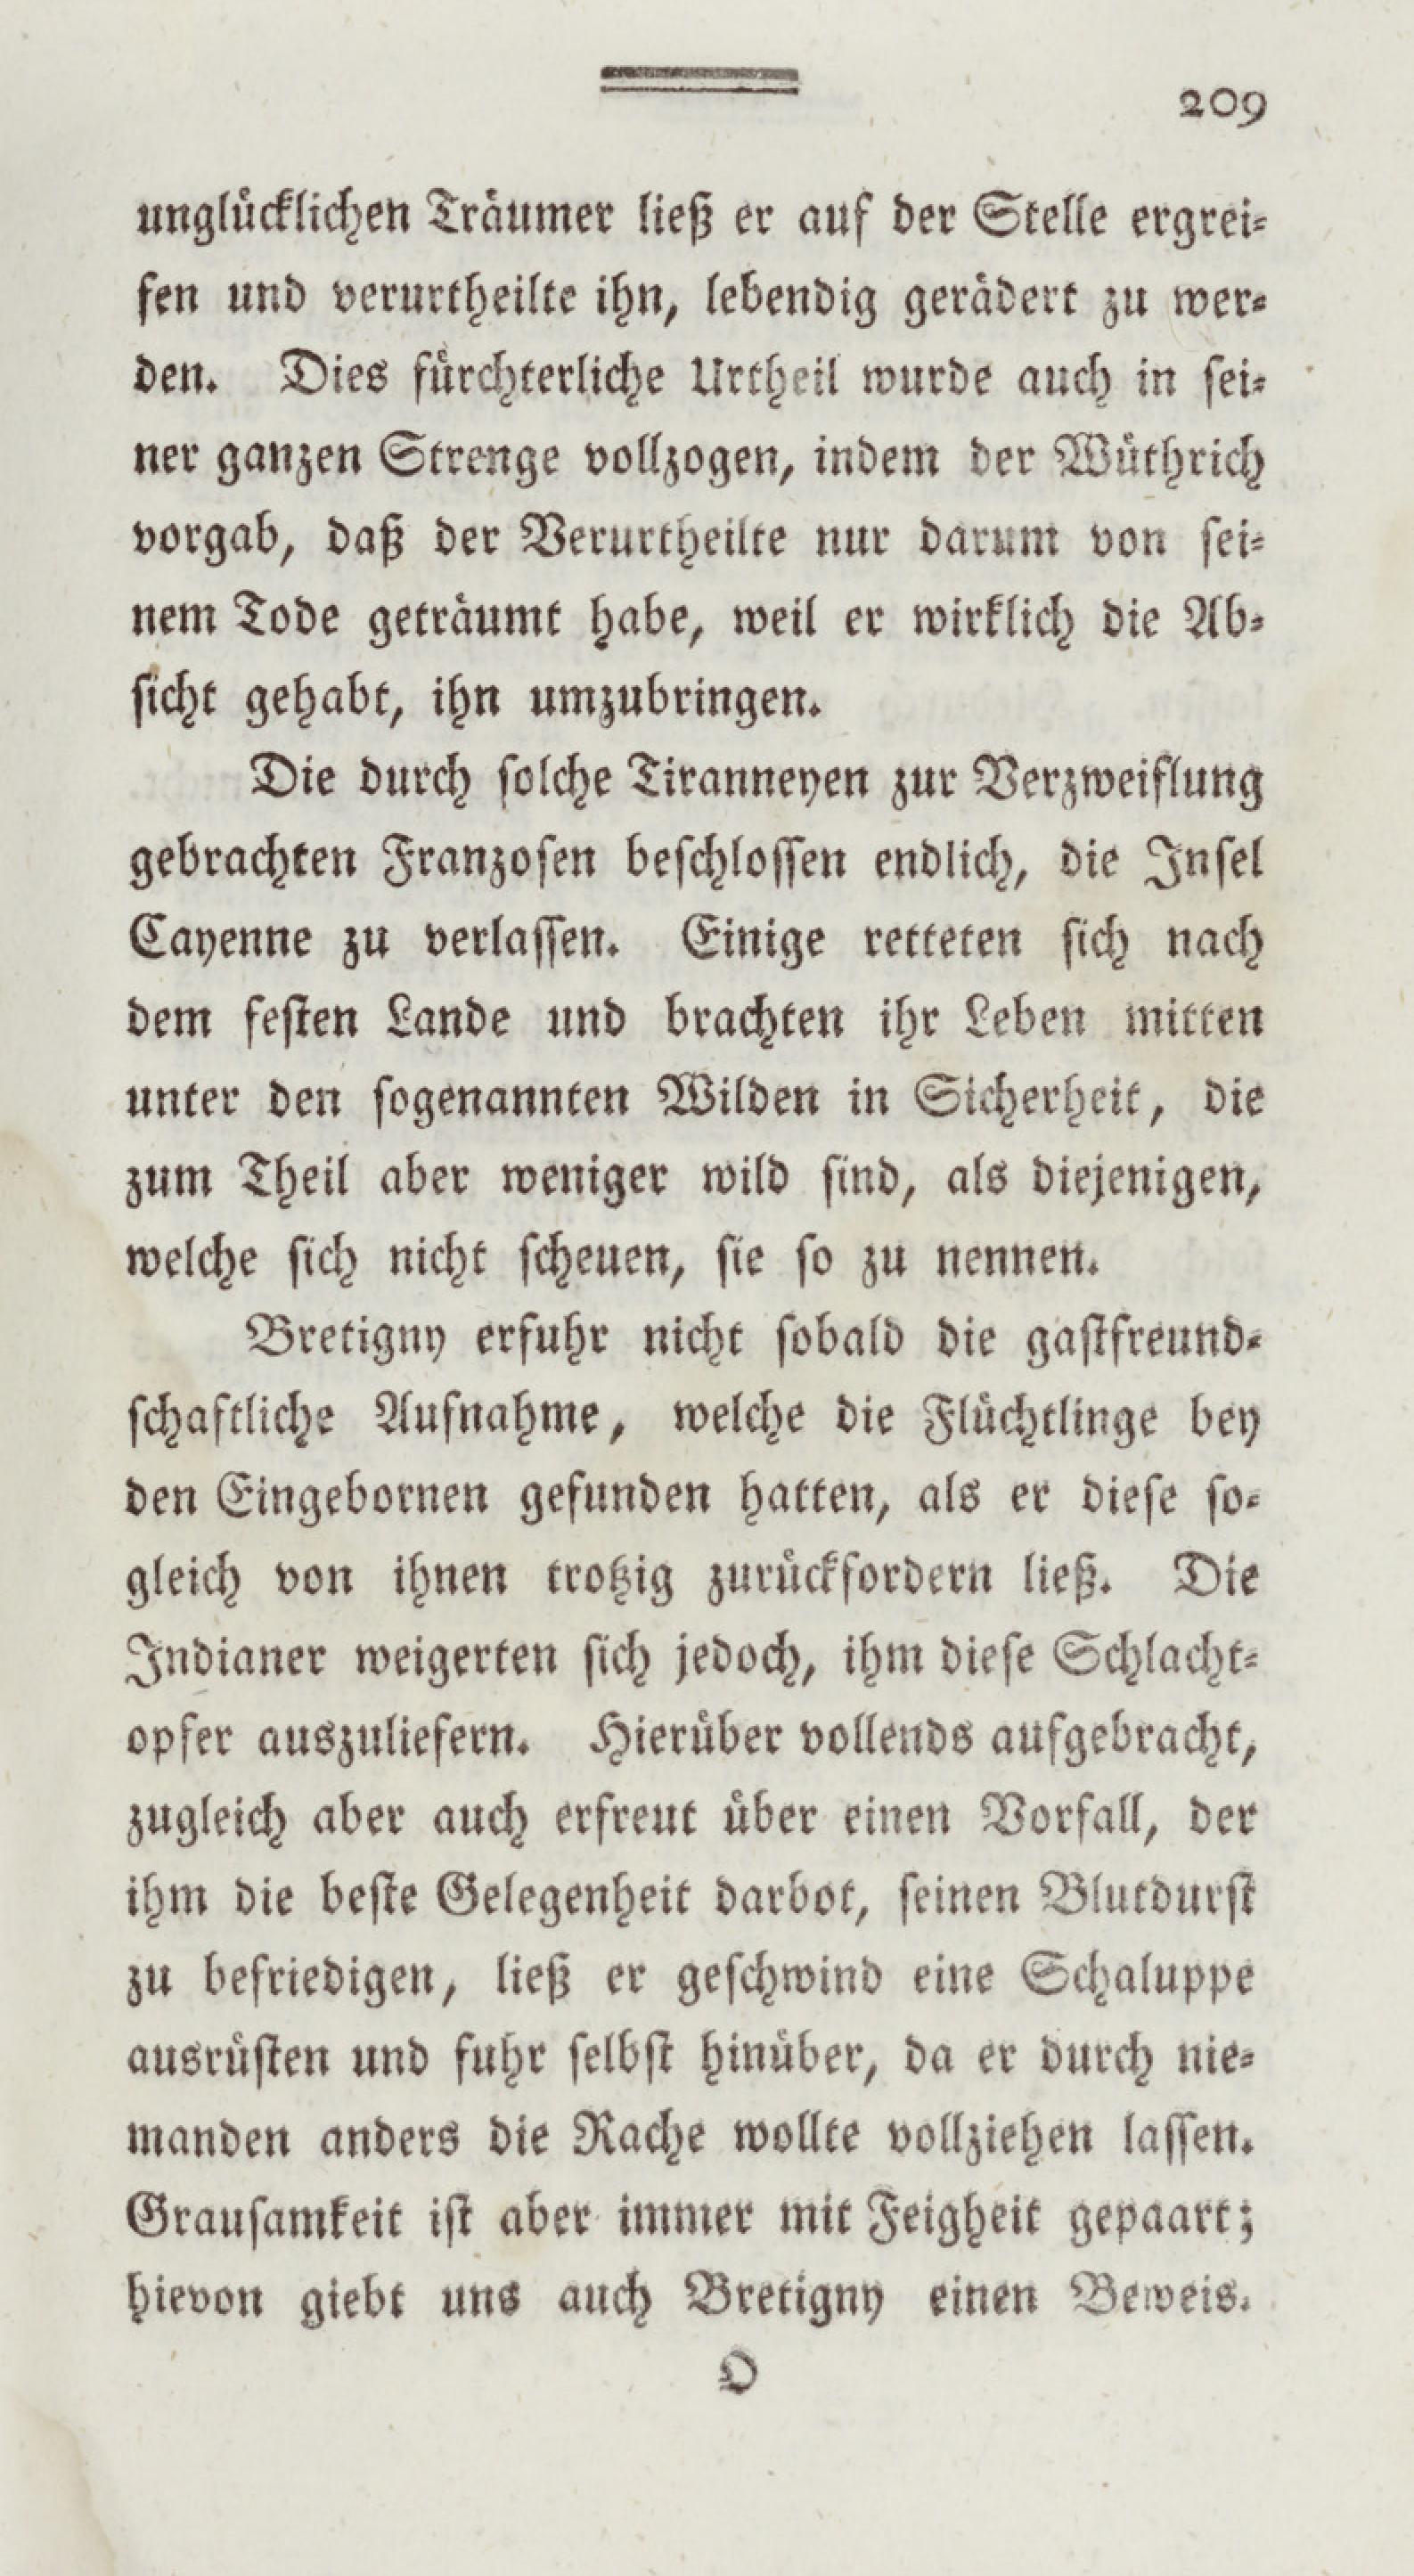 209
unglücklichen Träumer ließ er auf der Stelle ergrei⸗
fen und verurtheilte ihn, lebendig gerädert zu wer⸗
den. Dies fürchterliche Urtheil wurde auch in ſei⸗
ner ganzen Strenge vollzogen, indem der Wüthrich
vorgab, daß der Verurtheilte nur darum von ſei⸗
nem Tode geträumt habe, weil er wirklich die Ab⸗
ſicht gehabt, ihn umzubringen.
Die durch ſolche Tiranneyen zur Verzweiflung
gebrachten Franzoſen beſchloſſen endlich, die Inſel
Cayenne zu verlaſſen. Einige retteten ſich nach
dem feſten Lande und brachten ihr Leben mitten
unter den ſogenannten Wilden in Sicherheit, die
zum Theil aber weniger wild ſind, als diejenigen,
welche ſich nicht ſcheuen, ſie ſo zu nennen.
Bretigny erfuhr nicht ſobald die gaſtfreund⸗
ſchaftliche Aufnahme, welche die Flüchtlinge bey
den Eingebornen gefunden hatten, als er dieſe ſo⸗
gleich von ihnen trotzig zurückfordern ließ. Die
Indianer weigerten ſich jedoch, ihm dieſe Schlacht⸗
opfer auszuliefern. Hierüber vollends aufgebracht,
zugleich aber auch erfreut über einen Vorfall, der
ihm die beſte Gelegenheit darbot, ſeinen Blutdurſt
zu befriedigen, ließ er geſchwind eine Schaluppe
ausrüſten und fuhr ſelbſt hinüber, da er durch nie⸗
manden anders die Rache wollte vollziehen laſſen.
Grauſamkeit iſt aber immer mit Feigheit gepaart;
hievon giebt uns auch Bretigny einen Beweis.
O